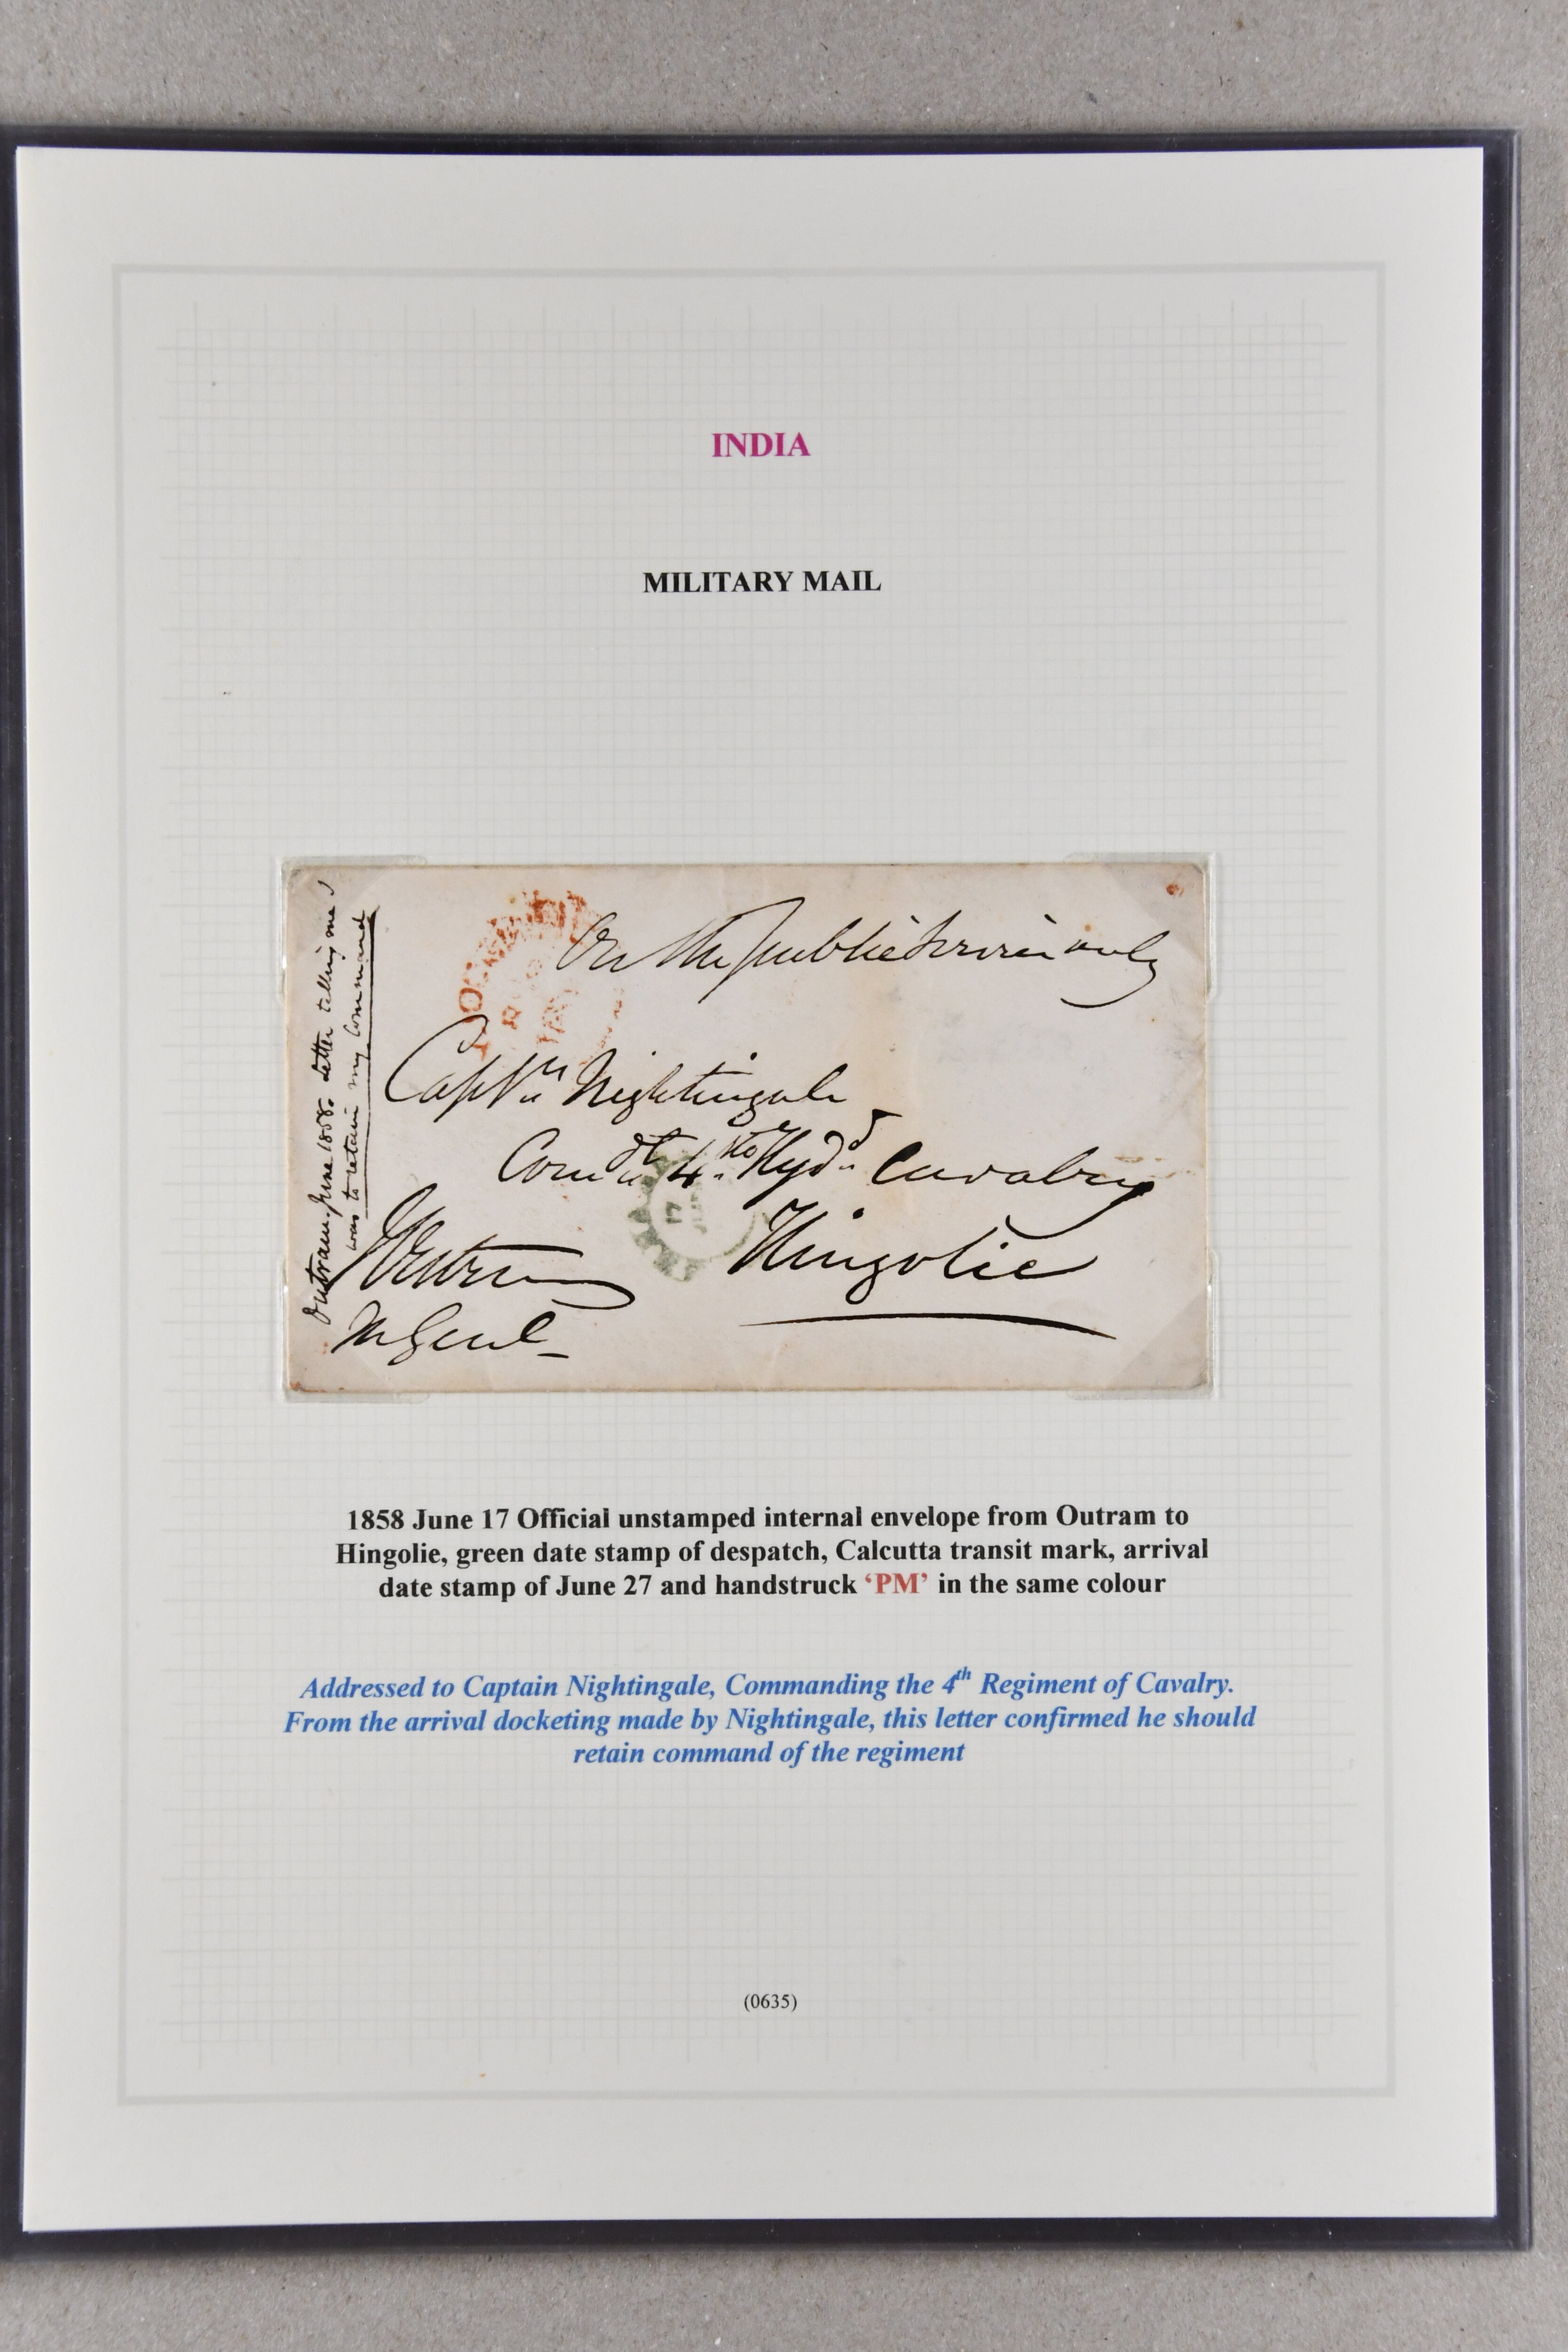 INDIA
MILITARY MAIL
On the public service only
Captn Nightingale
Comdt 4th Hydd Cavalry
Hingolie
Outram
M Genl
Outram. June 1858. Letter telling me I
was to retain my Command
17
1858 June 17 Official unstamped internal envelope from Outram to
Hingolie, green date stamp of despatch, Calcutta transit mark, arrival
date stamp of June 27 and handstruck ‘PM’ in the same colour
Addressed to Captain Nightingale, Commanding the 4th Regiment of Cavalry.
From the arrival docketing made by Nightingale, this letter confirmed he should
retain command of the regiment
(0635)